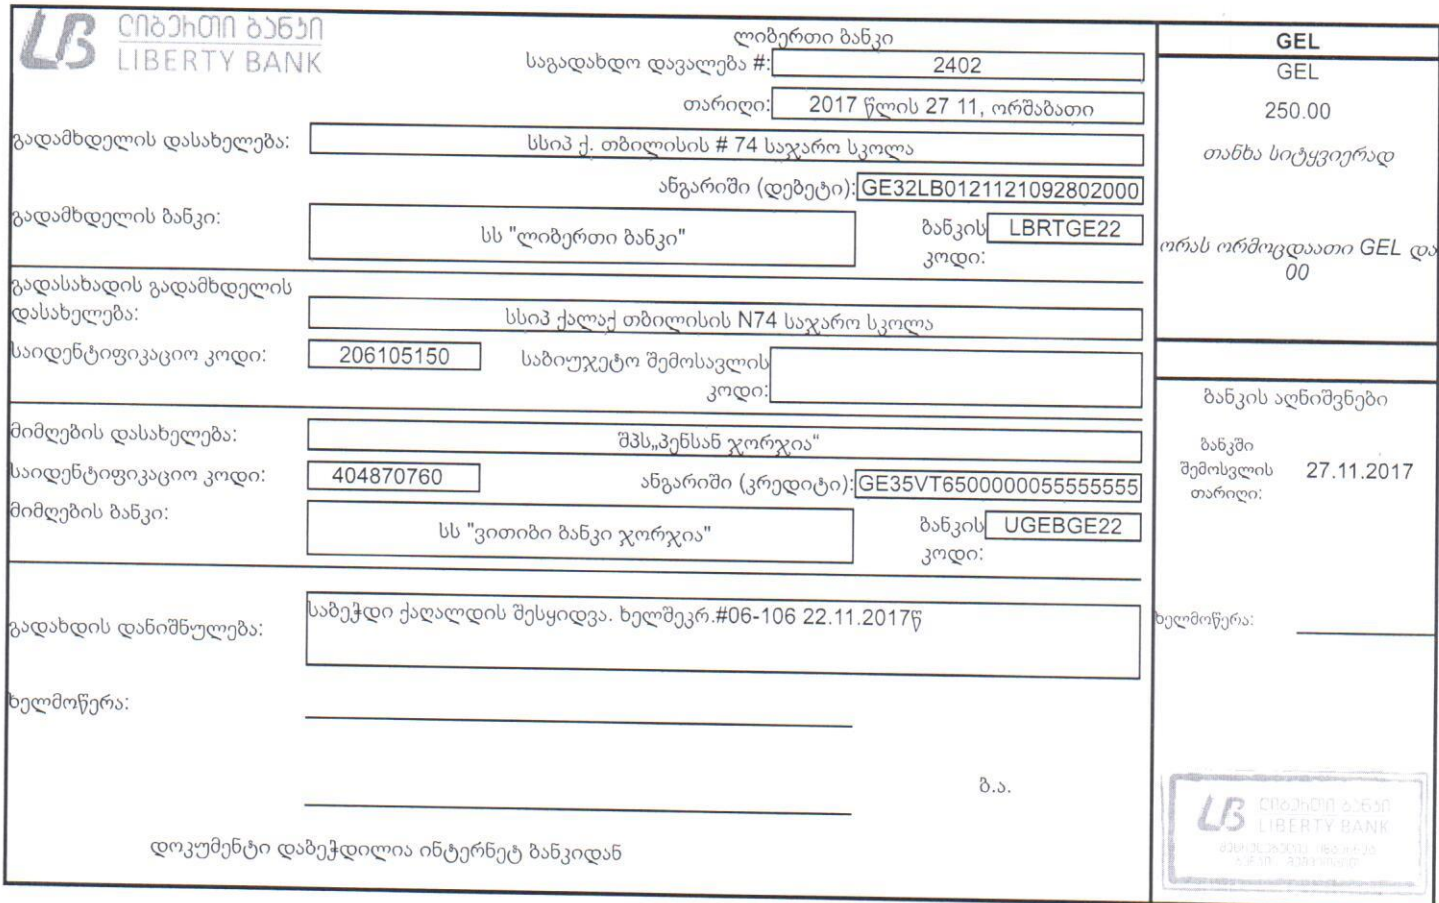 ლიბერთი ბანკი
LIBERTY BANK
ლიბერთი ბანკი
საგადახდო დავალება #: 2402
თარიღი: 2017 წლის 27 11, ორშაბათი
გადამხდელის დასახელება: სსიპ ქ. თბილისის # 74 საჯარო სკოლა
ანგარიში (დებეტი): GE32LB0121121092802000
გადამხდელის ბანკი: სს "ლიბერთი ბანკი" ბანკის კოდი: LBRTGE22
გადასახადის გადამხდელის
დასახელება: სსიპ ქალაქ თბილისის N74 საჯარო სკოლა
საიდენტიფიკაციო კოდი: 206105150 საბიუჯეტო შემოსავლის
კოდი:
მიმღების დასახელება: შპს„პენსან ჯორჯია“
საიდენტიფიკაციო კოდი: 404870760 ანგარიში (კრედიტი): GE35VT6500000055555555
მიმღების ბანკი: სს "ვითიბი ბანკი ჯორჯია" ბანკის კოდი: UGEBGE22
გადახდის დანიშნულება: საბეჭდი ქაღალდის შესყიდვა. ხელშეკრ.#06-106 22.11.2017წ
ხელმოწერა:
ბ.ა.
დოკუმენტი დაბეჭდილია ინტერნეტ ბანკიდან
GEL
GEL
250.00
თანხა სიტყვიერად
ორას ორმოცდაათი GEL და
00
ბანკის აღნიშვნები
ბანკში
შემოსვლის 27.11.2017
თარიღი:
ხელმოწერა:
ლიბერთი ბანკი
LIBERTY BANK